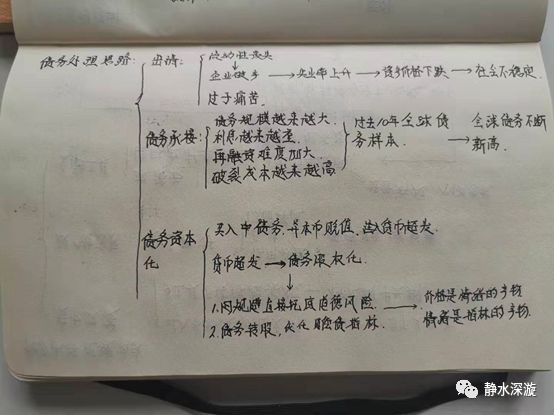 债务处理思路:
出清:
流动性丧失
企业破产 → 失业率上升 → 资产价格下跌 → 社会不稳定.
过于痛苦.
债务承接:
债务规模越来越大.
利息越来越重.
再融资难度加大.
破裂成本越来越高
过去10年全球债务样本.
→ 全球债务不断新高.
债务资本化
买入中债务, 本币贬值, 进入货币超发.
货币超发 → 债务资本化.
1. 间规避直接 道德风险.
2. 债务转股, 优化 债指标.
→ 价格是情绪的产物
情绪是指标的产物.
静水深漩